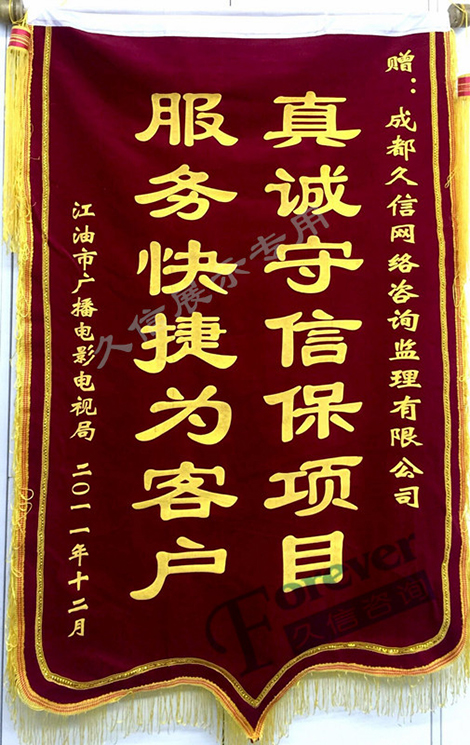 赠：成都久信网络咨询监理有限公司
真诚守信保项目
服务快捷为客户
江油市广播电影电视局 二〇一一年十二月
久信展示专用
Forever
久信咨询